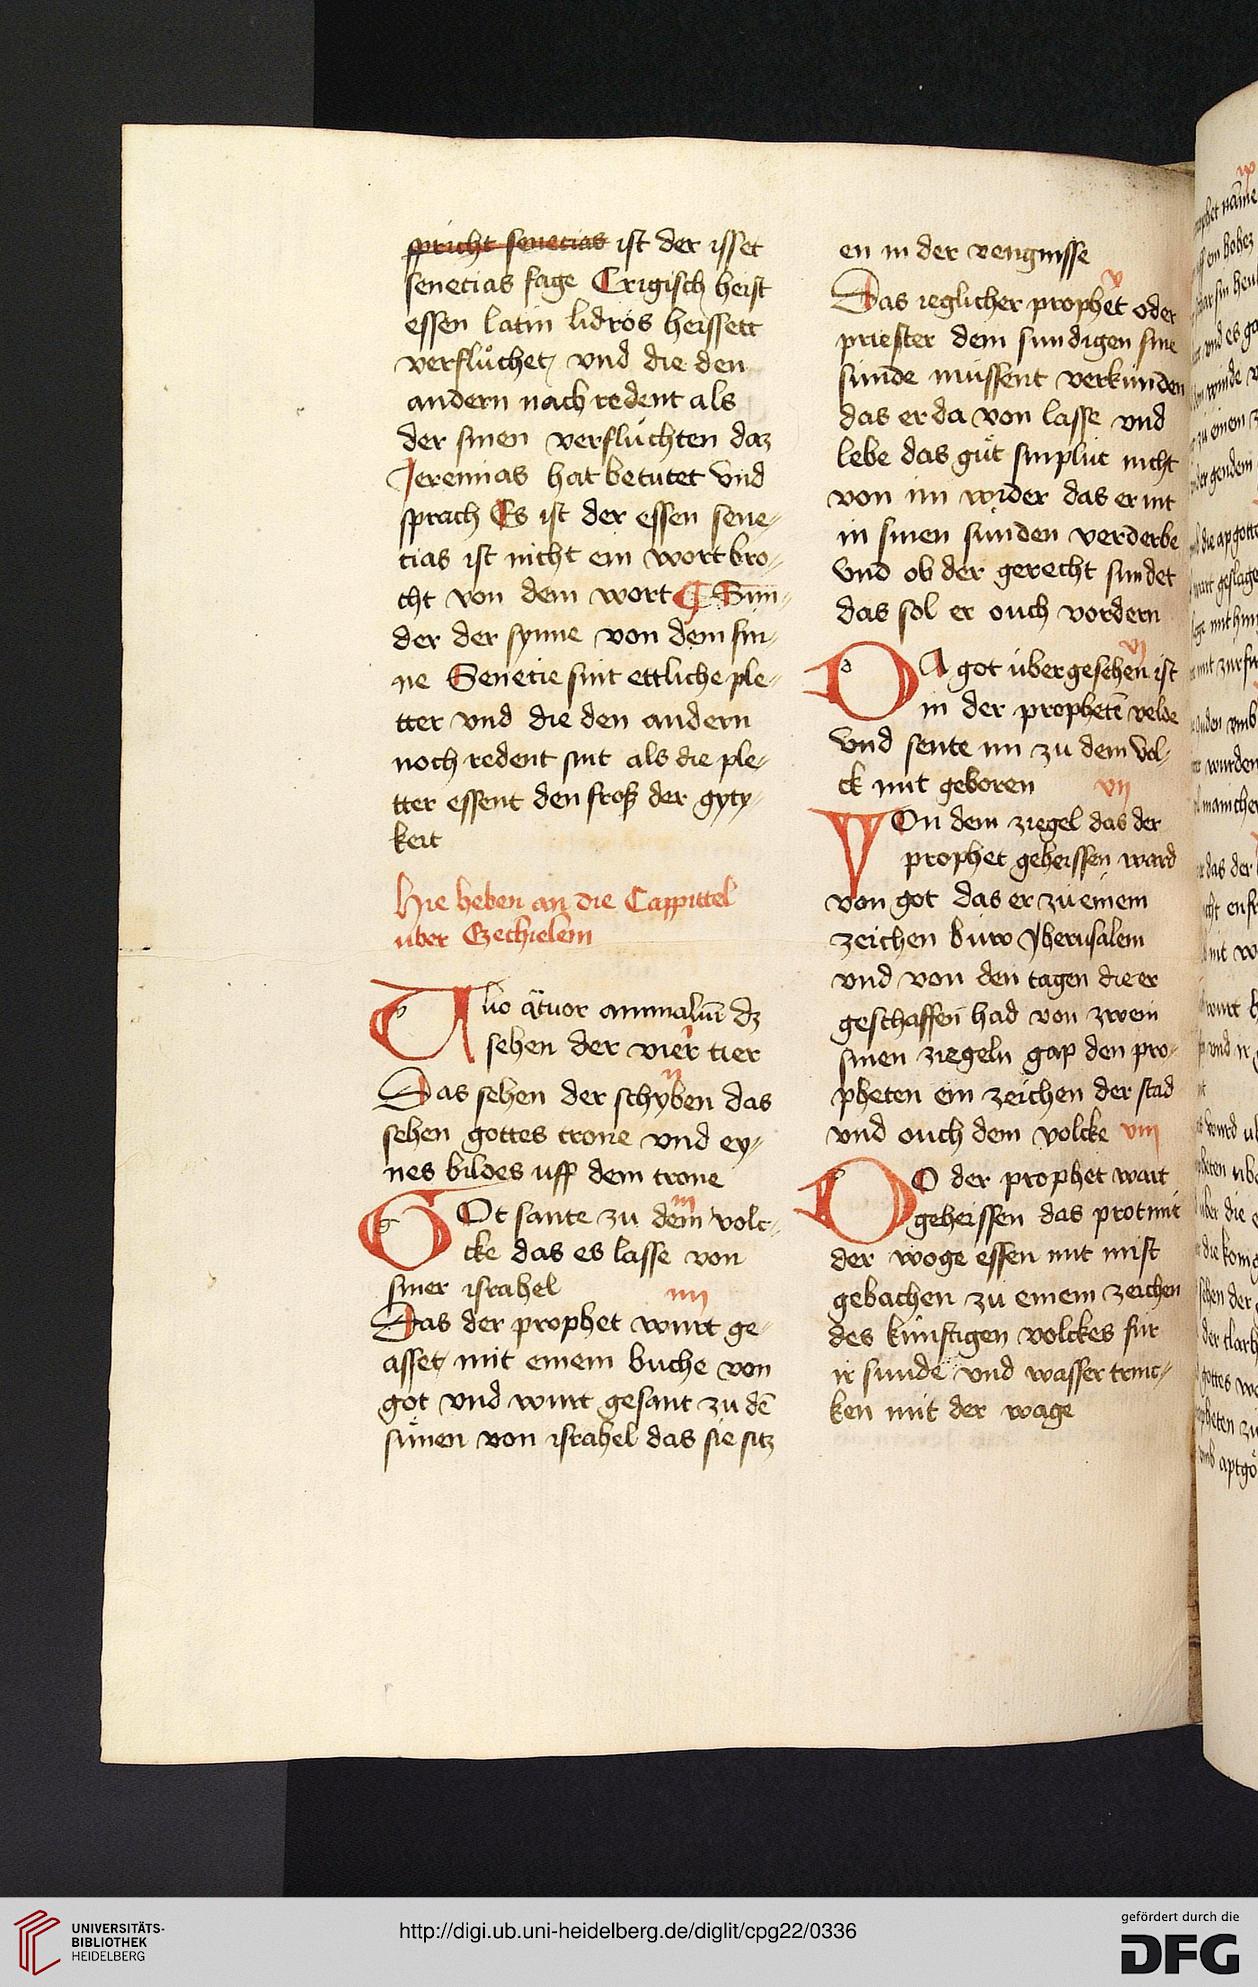 spricht senecias ist der isset
senecias sage Crigisch heist
essen latin lidros heissett
verflůchet und die den
andern nach redent als
der sinen verflůchten daz
Jeremias hat betutet Vnd
sprach Es ist der essen sene-
cias ist nicht ein wort bro-
cht von dem wort Sun-
der der synne von dem sin-
ne Senecie sint ettliche ple-
tter vnd die den andern
noch redent sint als die ple-
tter essent den froß der gyty-
keit
Hie heben an die Cappittel
uber Ezechielem
Duo q̈tuor animaliū dz
sehen der vier tier
ij
Das sehen der schyben das
sehen gottes trone vnd ey-
nes bildes uff dem trone
iij
GOt sante zu dem volc-
cke das es lasse von
siner israhel
iiij
Das der prophet wirt ge-
asset mit einem buche von
got vnd wirt gesant zu dē
sünen von israhel das sie sitz
en in der vengnisse
v
Das ieglicher prophet oder
priester dem sundigen sine
sunde müssent verkunden
das er da von lasse vnd
lebe das gůt sinplüt nicht
von im wider das er nit
in sinen sunden verderbe
Vnd ob der gerecht sundet
das sol er ouch vordern
vi
DA got übergesehen ist
in der prophetē velde
Vnd sente im zu dem Vol-
ck mit geboren
vij
VOn dem ziegel das der
prophet geheissen ward
von got das er zu einem
zeichen buw Jherusalem
vnd von den tagen die er
geschaffen had von zwein
sinen ziegeln gap den pro-
pheten ein zeichen der stad
vnd ouch dem volcke viij
DO der prophet wart
geheissen das prot mit
der woge essen mit mist
gebachen zu einem zeichen
des künftigen volckes für
ir sunde vnd wasser trinc-
ken mit der wage
UNIVERSITÄTS-
BIBLIOTHEK
HEIDELBERG
http://digi.ub.uni-heidelberg.de/diglit/cpg22/0336
gefördert durch die
DFG